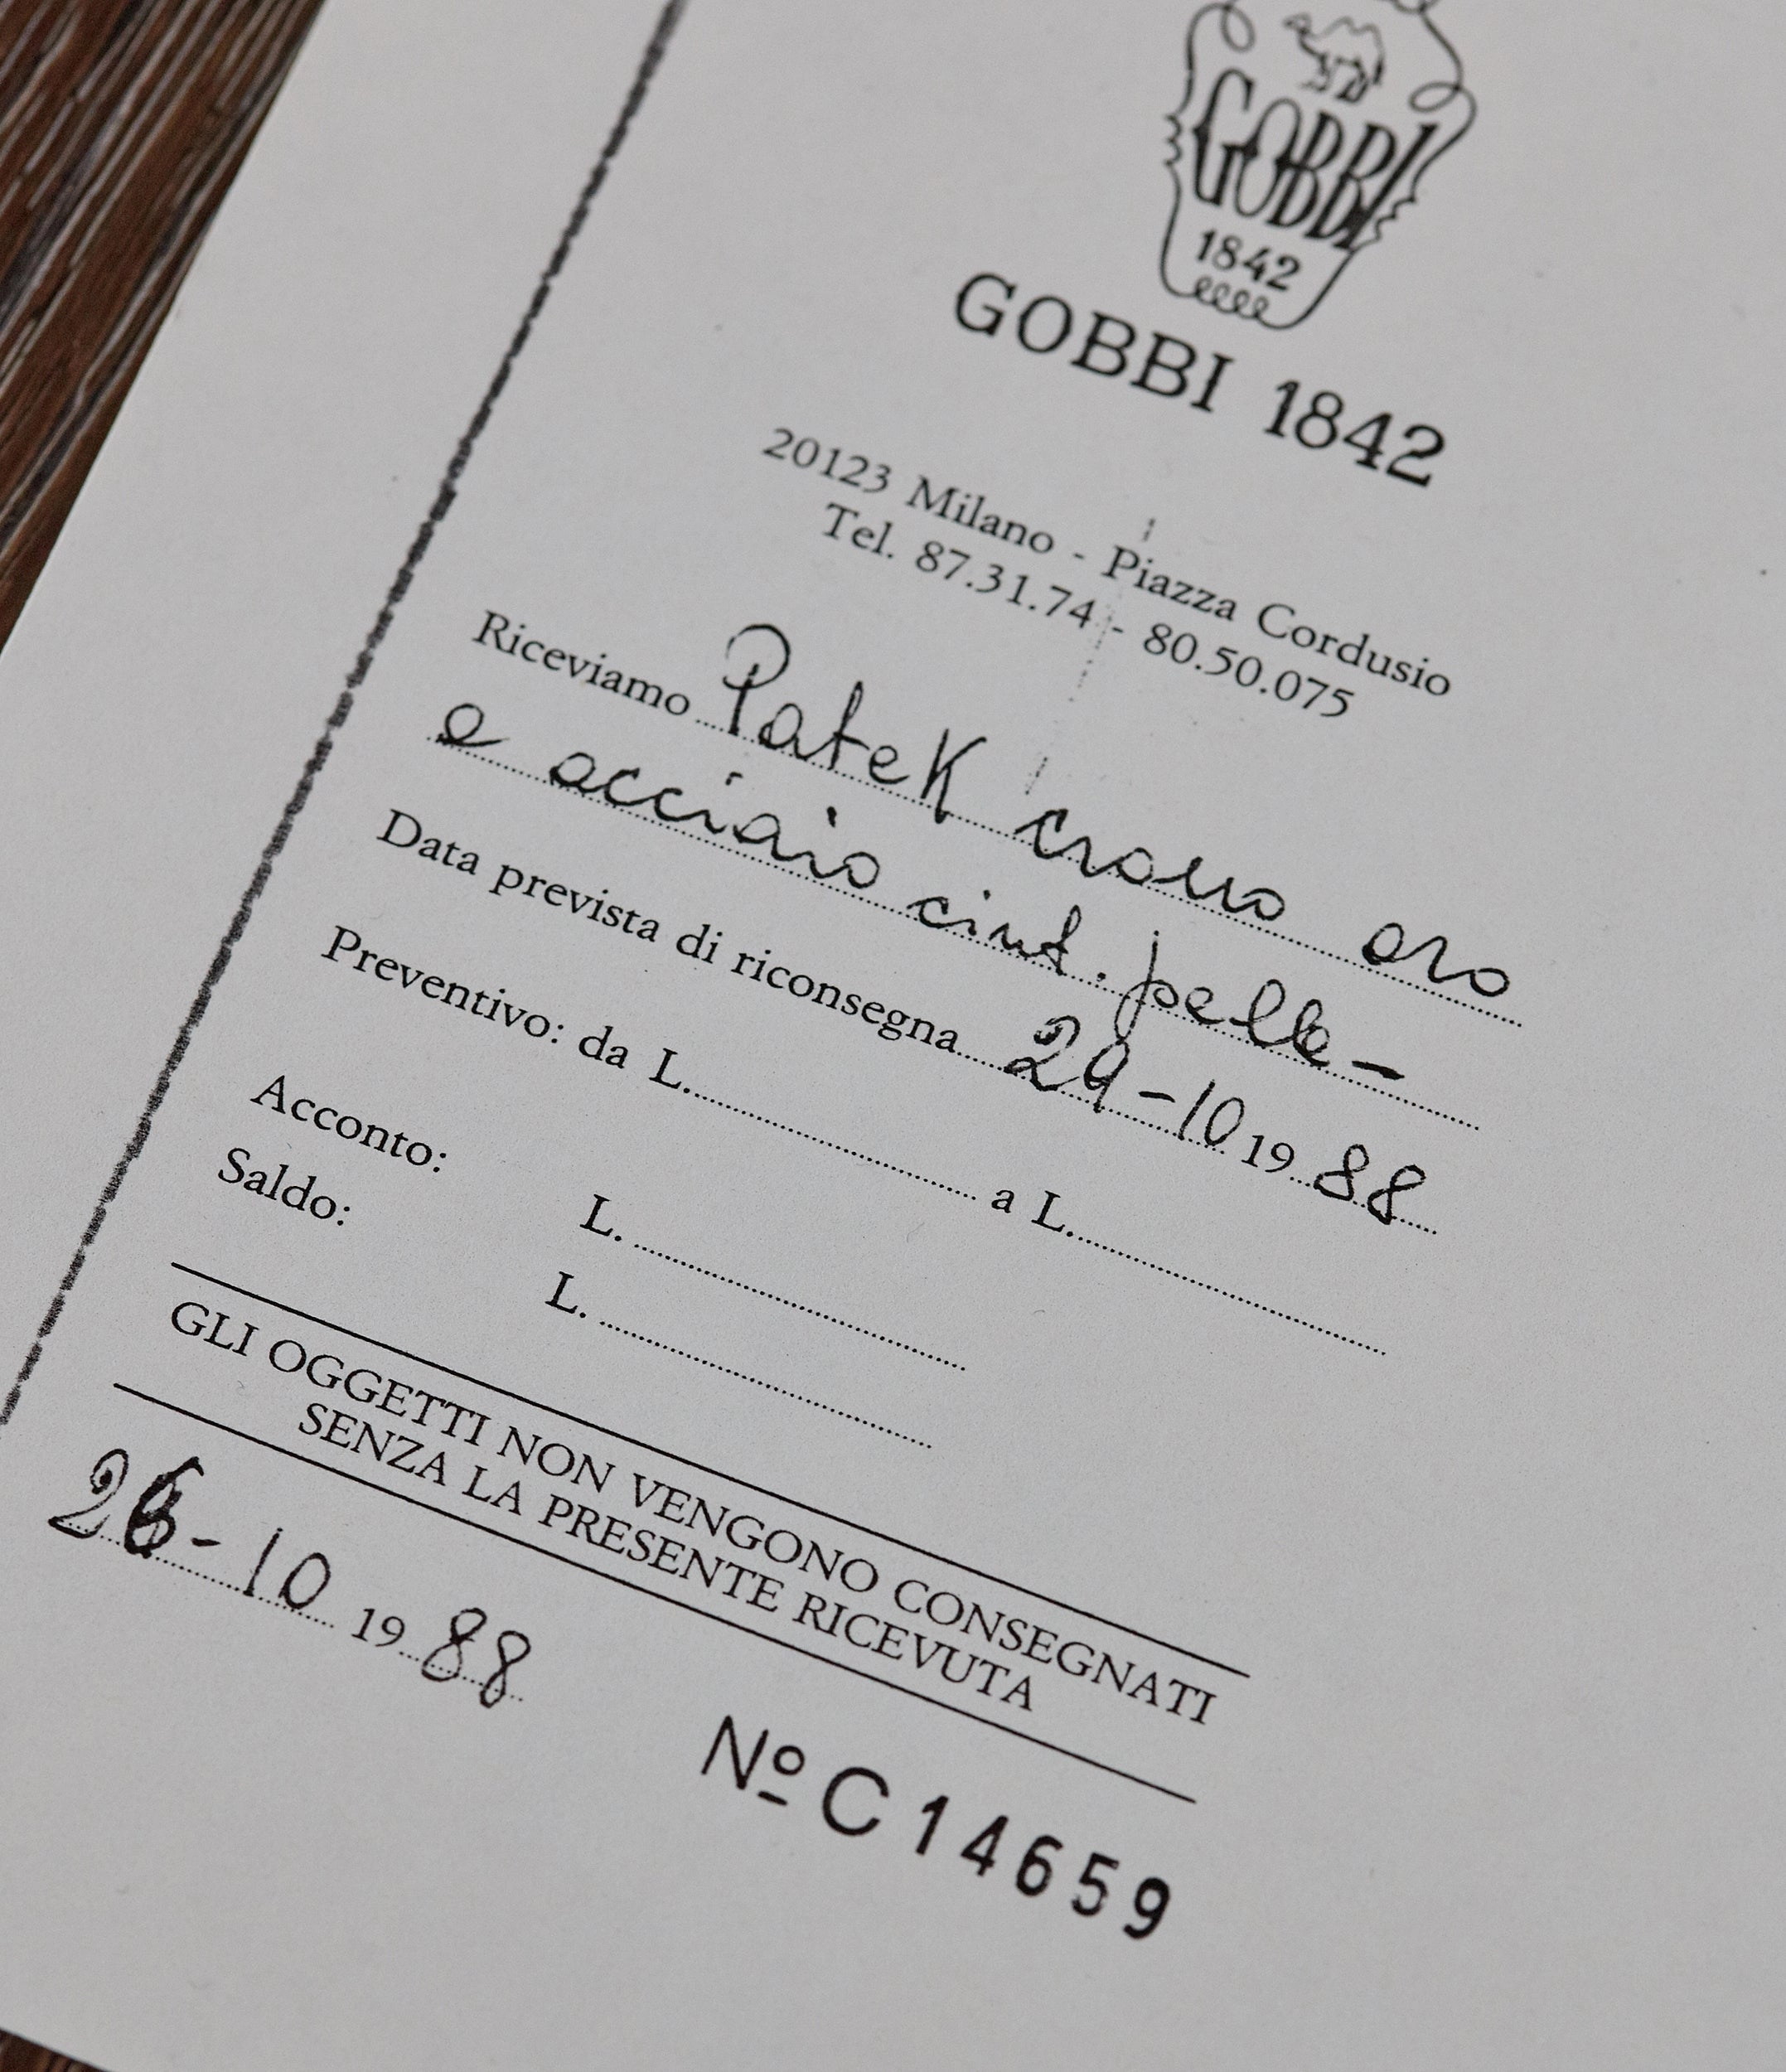 GOBBI
1842
GOBBI 1842
20123 Milano - Piazza Cordusio
Tel. 87.31.74 - 80.50.075
Riceviamo Patek crono oro
e acciaio cint. pelle -
Data prevista di riconsegna 29-10 19 88
Preventivo: da L. a L.
Acconto: L.
Saldo: L.
GLI OGGETTI NON VENGONO CONSEGNATI
SENZA LA PRESENTE RICEVUTA
26-10 19 88
Nº C 14659